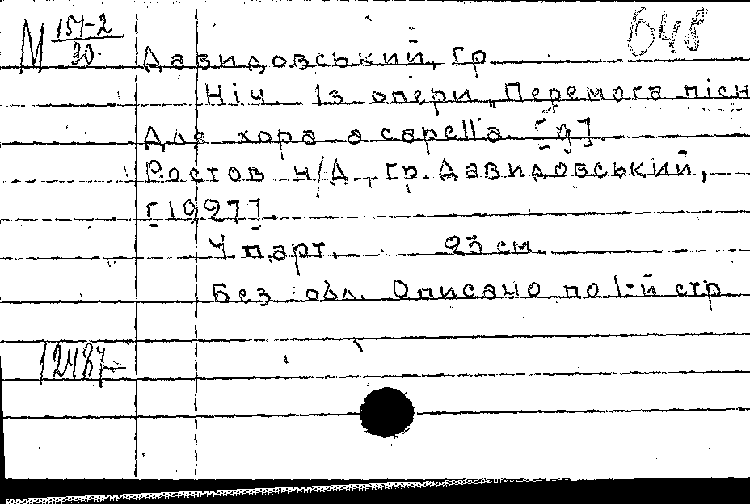 М 151-2
20.
648
Давидовський, Гр.
Ніч. Із опери „Перемога пісн
Для хора a capella. [g].
Ростов н/Д, Гр. Давидовський,
[1927]
Ч парт. 25 см.
Без обл. Описано по 1-й стр.
12487